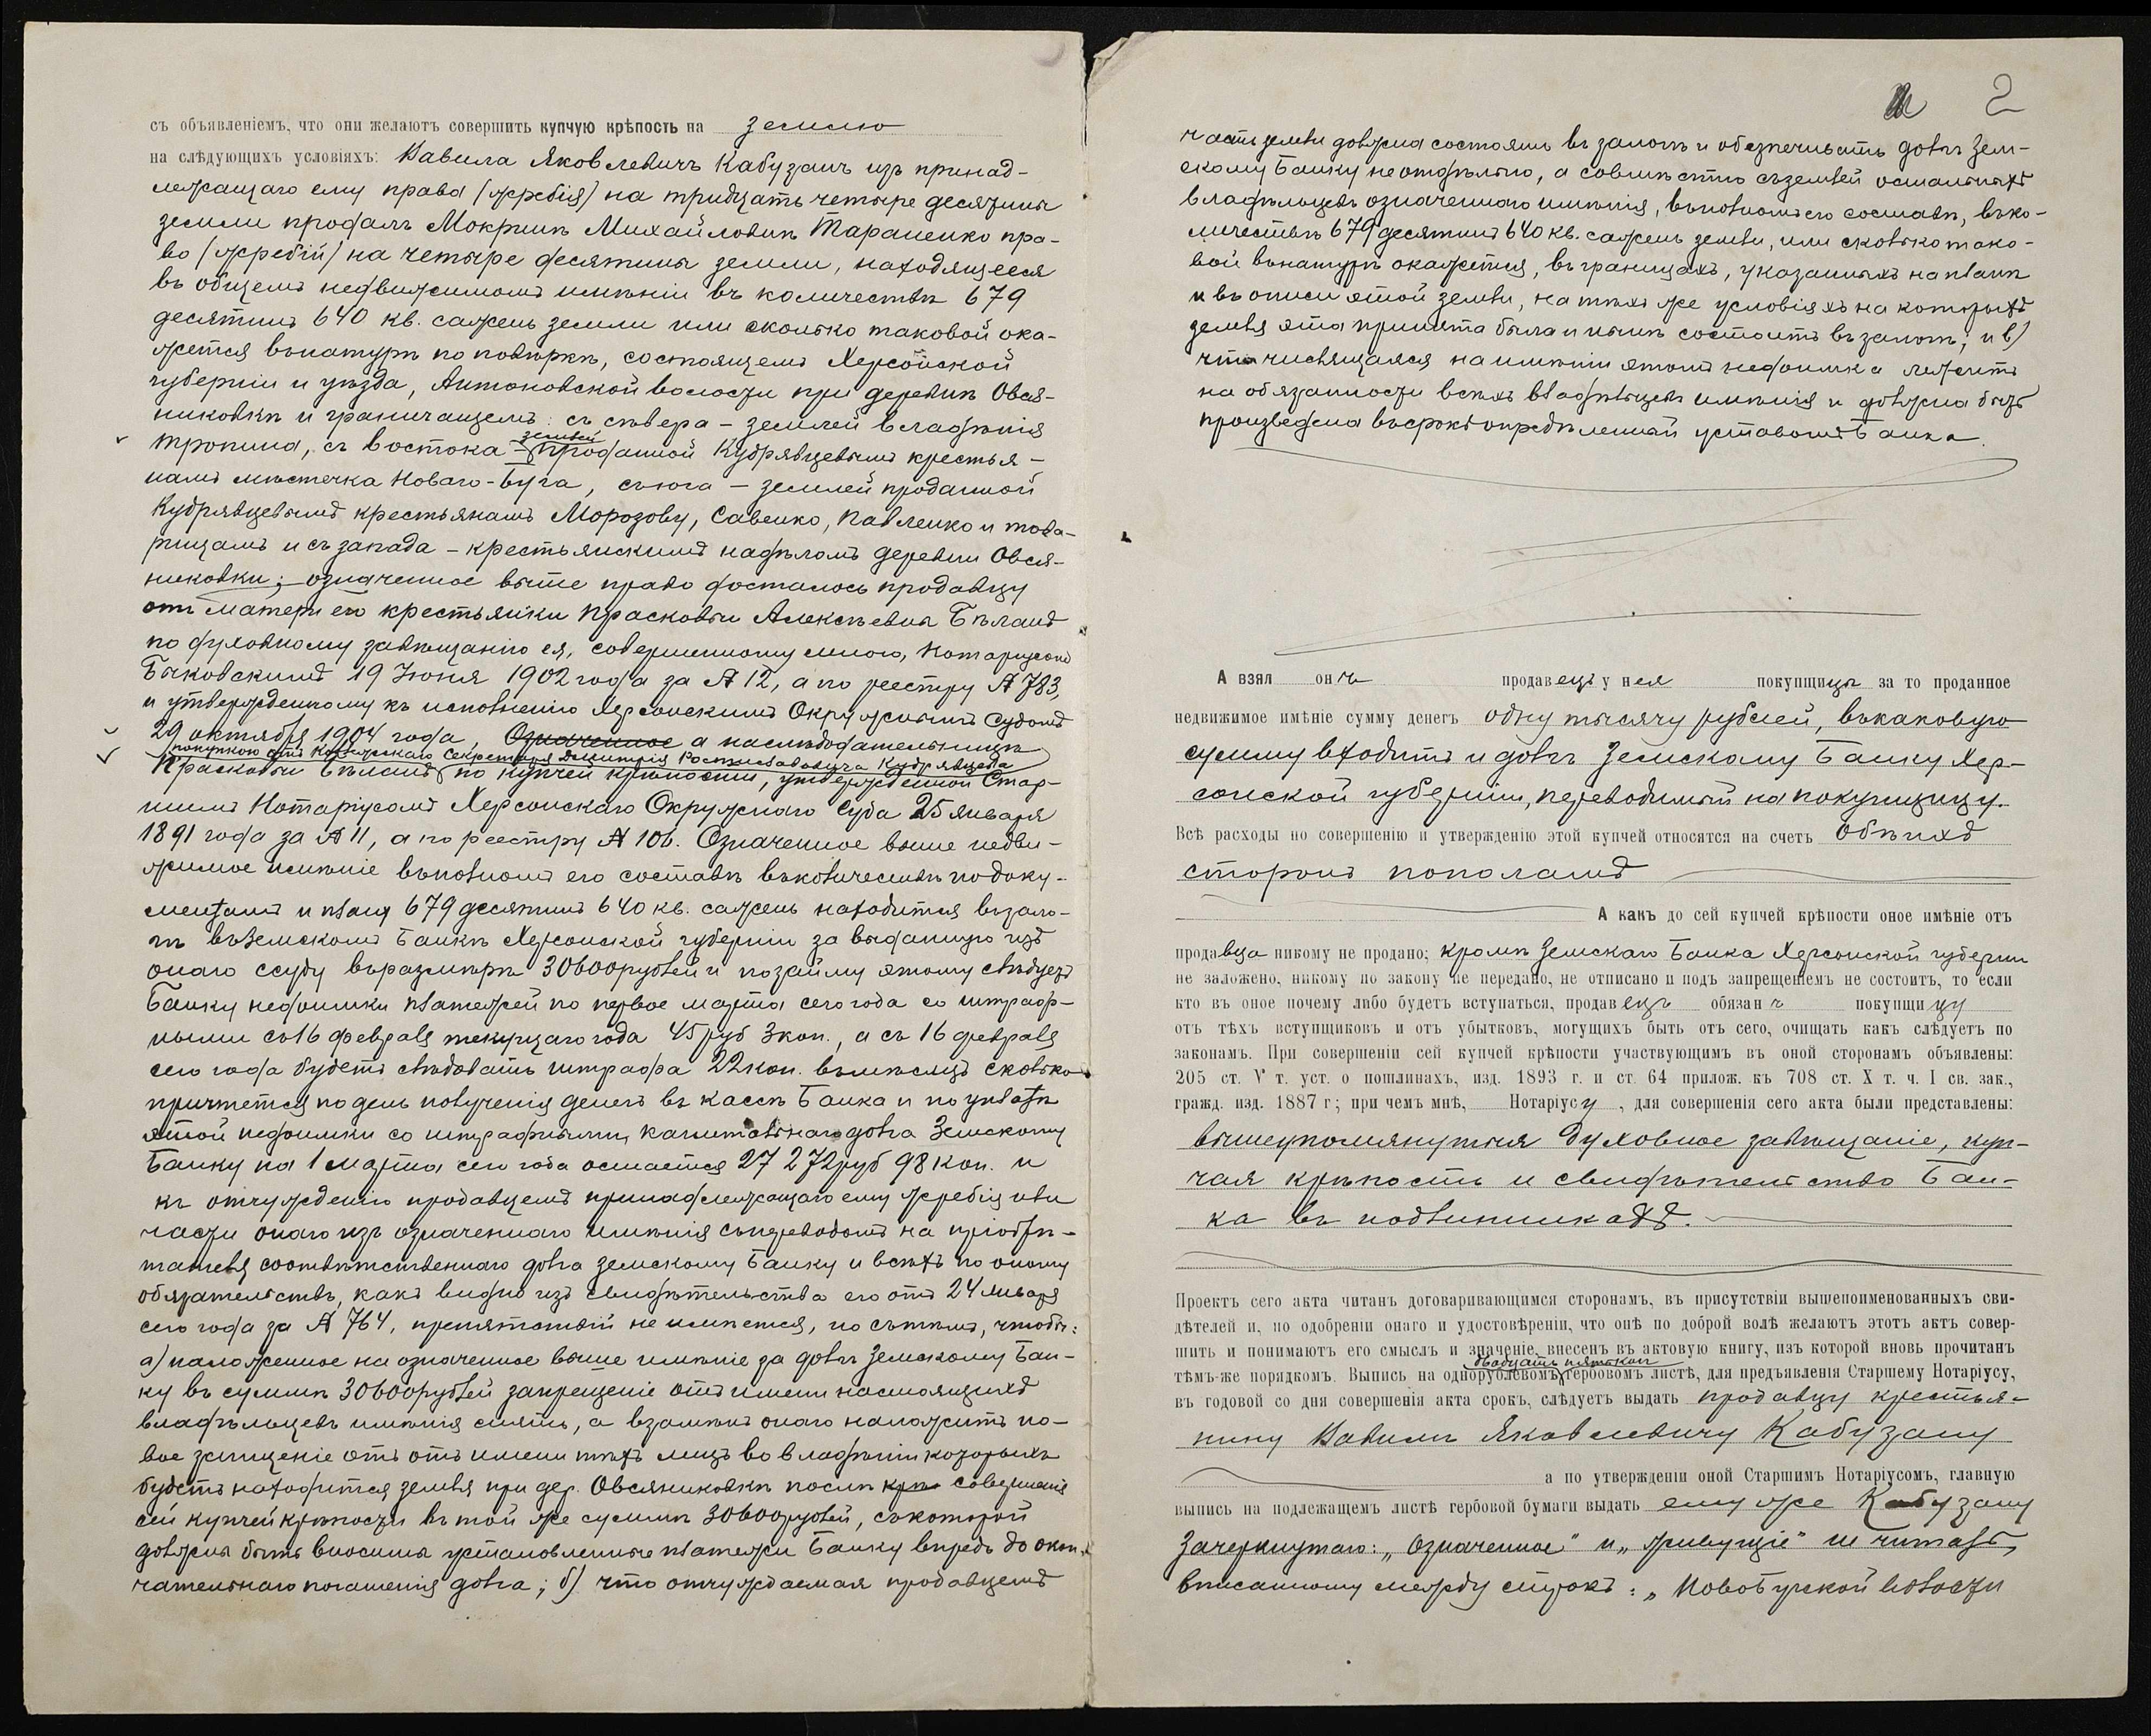 съ объявленіемъ, что они желаютъ совершить купчую крѣпость на землю
на слѣдующихъ условіяхъ: Вавила Яковлевичъ Кабузанъ изъ принад-
лежащаго ему права (жребія) на тридцать четыре десятины
земли продалъ Мокринѣ Михайловнѣ Тараненко пра-
во (жребій) на четыре десятины земли, находящееся
въ общемъ недвижимомъ имѣніи въ количествѣ 679
десятинъ 640 кв. сажень земли или сколько таковой ока-
жется въ натурѣ по повѣркѣ, состоящемъ Херсонской
губерніи и уѣзда, Антоновской волости при деревнѣ Овся-
никовкѣ и граничащемъ: съ сѣвера – землей владѣнія
Тропина, съ востока – землей проданной Кудрявцевымъ крестья-
намъ мѣстечка Новаго-Буга, съ юга – землей проданной
Кудрявцевымъ крестьянамъ Морозову, Савенко, Павленко и това-
рищамъ и съ запада – крестьянскимъ надѣломъ деревни Овся-
никовки; означенное выше право досталось продавцу
отъ матери его крестьянки Прасковьи Алексѣевны Бѣланъ
по духовному завѣщанію ея, совершенному мною, Нотаріусомъ
Бычковскимъ 19 Іюня 1902 года за № 12, а по реестру № 783,
и утвержденному къ исполненію Херсонскимъ Окружнымъ Судомъ
29 октября 1904 года, Означенное а наслѣдодательницѣ
покупкою отъ Коллежскаго Секретаря Димитрія Ростиславовича Кудрявцева
Прасковьи Бѣланъ по купчей крѣпости, утвержденной Стар-
шимъ Нотаріусомъ Херсонскаго Окружнаго Суда 25 января
1891 года за № 11, а по реестру № 106. Означенное выше недви-
жимое имѣніе въ полномъ его составѣ въ количествѣ по доку-
ментамъ и плану 679 десятинъ 640 кв. сажень находится въ зало-
гѣ въ Земскомъ Банкѣ Херсонской губерніи за выданную изъ
онаго ссуду въ размѣрѣ 30600 рублей и по займу этому слѣдуетъ
Банку недоимки платежей по первое марта сего года со штраф-
ными со 16 февраля текущаго года 45 руб 3 коп., а съ 16 февраля
сего года будетъ слѣдовать штрафа 22 коп. въ мѣсяцъ сколько
причтется по день полученія денегъ въ кассѣ Банка и по уплатѣ
этой недоимки со штрафными, капитальнаго долга Земскому
Банку на 1 марта сего года остается 27 272 руб 98 коп. и
къ отчужденію продавцемъ принадлежащаго ему жребія или
части онаго изъ означеннаго имѣнія съ переводомъ на пріобрѣ-
тателя соотвѣтственнаго долга Земскому Банку и всѣхъ по оному
обязательствъ, какъ видно изъ свидѣтельства его отъ 24 января
сего года за № 764, препятствій не имѣется, но съ тѣмъ, чтобы:
а) наложенное на означенное выше имѣніе за долгъ Земскому Бан-
ку въ суммѣ 30600 рублей запрещеніе отъ имени настоящихъ
владѣльцевъ имѣнія снять, а взамѣнъ онаго наложить но-
вое запрщеніе отъ отъ имени тѣхъ лицъ во владѣніи которыхъ
будетъ находится земля при дер. Овсяниковкѣ послѣ крѣ совершенія
сей купчей крѣпости въ той же суммѣ 30600 рублей, съ которой
должны быть вносимы установленные платежи Банку впредь до окон-
чательнаго погашенія долга; б) что отчуждаемая продавцемъ
2
часть земли должна состоять въ залогѣ и обезпечивать долгъ Зем-
скому Банку не отдѣльно, а совмѣстно съ землей остальныхъ
владѣльцевъ означеннаго имѣнія, въ полномъ его составѣ, въ ко-
личествѣ 679 десятинъ 640 кв. сажень земли, или сколько тако-
вой въ натурѣ окажется, въ границахъ, указанныхъ на планѣ
и въ описи этой земли, на тѣхъ же условіяхъ на которыхъ
земля эта принята была и нынѣ состоитъ въ залогѣ; и в)
что числящаяся на имѣніи этомъ недоимка лежитъ
на обязанности всѣхъ владѣльцевъ имѣнія и должна быть
произведена въ срокъ опредѣленный уставомъ Банка.
А взялъ онъ продавецъ у нея покупщицы за то проданное
недвижимое имѣніе сумму денегъ одну тысячу рублей, въ каковую
сумму входитъ и долгъ Земскому Банку Хер-
сонской губерніи, переводимый на покупщицу.
Всѣ расходы по совершенію и утвержденію этой купчей относятся на счетъ обѣихъ
сторонъ пополамъ
А какъ до сей купчей крѣпости оное имѣніе отъ
продавца никому не продано; кромѣ Земскаго Банка Херсонской губерніи
не заложено, никому по закону не передано, не отписано и подъ запрещеніемъ не состоитъ, то если
кто въ оное почему либо будетъ вступаться, продавецъ обязанъ покупщицу
отъ тѣхъ вступщиковъ и отъ убытковъ, могущихъ быть отъ сего, очищать какъ слѣдуетъ по
законамъ. При совершеніи сей купчей крѣпости участвующимъ въ оной сторонамъ объявлены:
205 ст. V т. уст. о пошлинахъ, изд. 1893 г. и ст. 64 прилож. къ 708 ст. X т. ч. I св. зак.,
гражд. изд. 1887 г; при чемъ мнѣ, Нотаріусу, для совершенія сего акта были представлены:
вышеупомянутыя духовное завѣщаніе, куп-
чая крѣпость и свидѣтельство Бан-
ка въ подлинникахъ.
Проектъ сего акта читанъ договаривающимся сторонамъ, въ присутствіи вышепоименованныхъ сви-
дѣтелей и, по одобреніи онаго и удостовѣреніи, что онѣ по доброй волѣ желаютъ этотъ актъ совер-
шить и понимаютъ его смыслъ и значеніе, внесенъ въ актовую книгу, изъ которой вновь прочитанъ
двадцать пять коп
тѣмъ-же порядкомъ. Выпись на однорублевомъ гербовомъ листѣ, для предъявленія Старшему Нотаріусу,
въ годовой со дня совершенія акта срокъ, слѣдуетъ выдать продавцу крестья-
нину Вавилѣ Яковлевичу Кабузану
а по утвержденіи оной Старшимъ Нотаріусомъ, главную
выпись на подлежащемъ листѣ гербовой бумаги выдать ему же Кабузану
Зачеркнутаго: „Означенное" и „живущіе" не читать,
вписанному между строкъ: „Новобугской волости